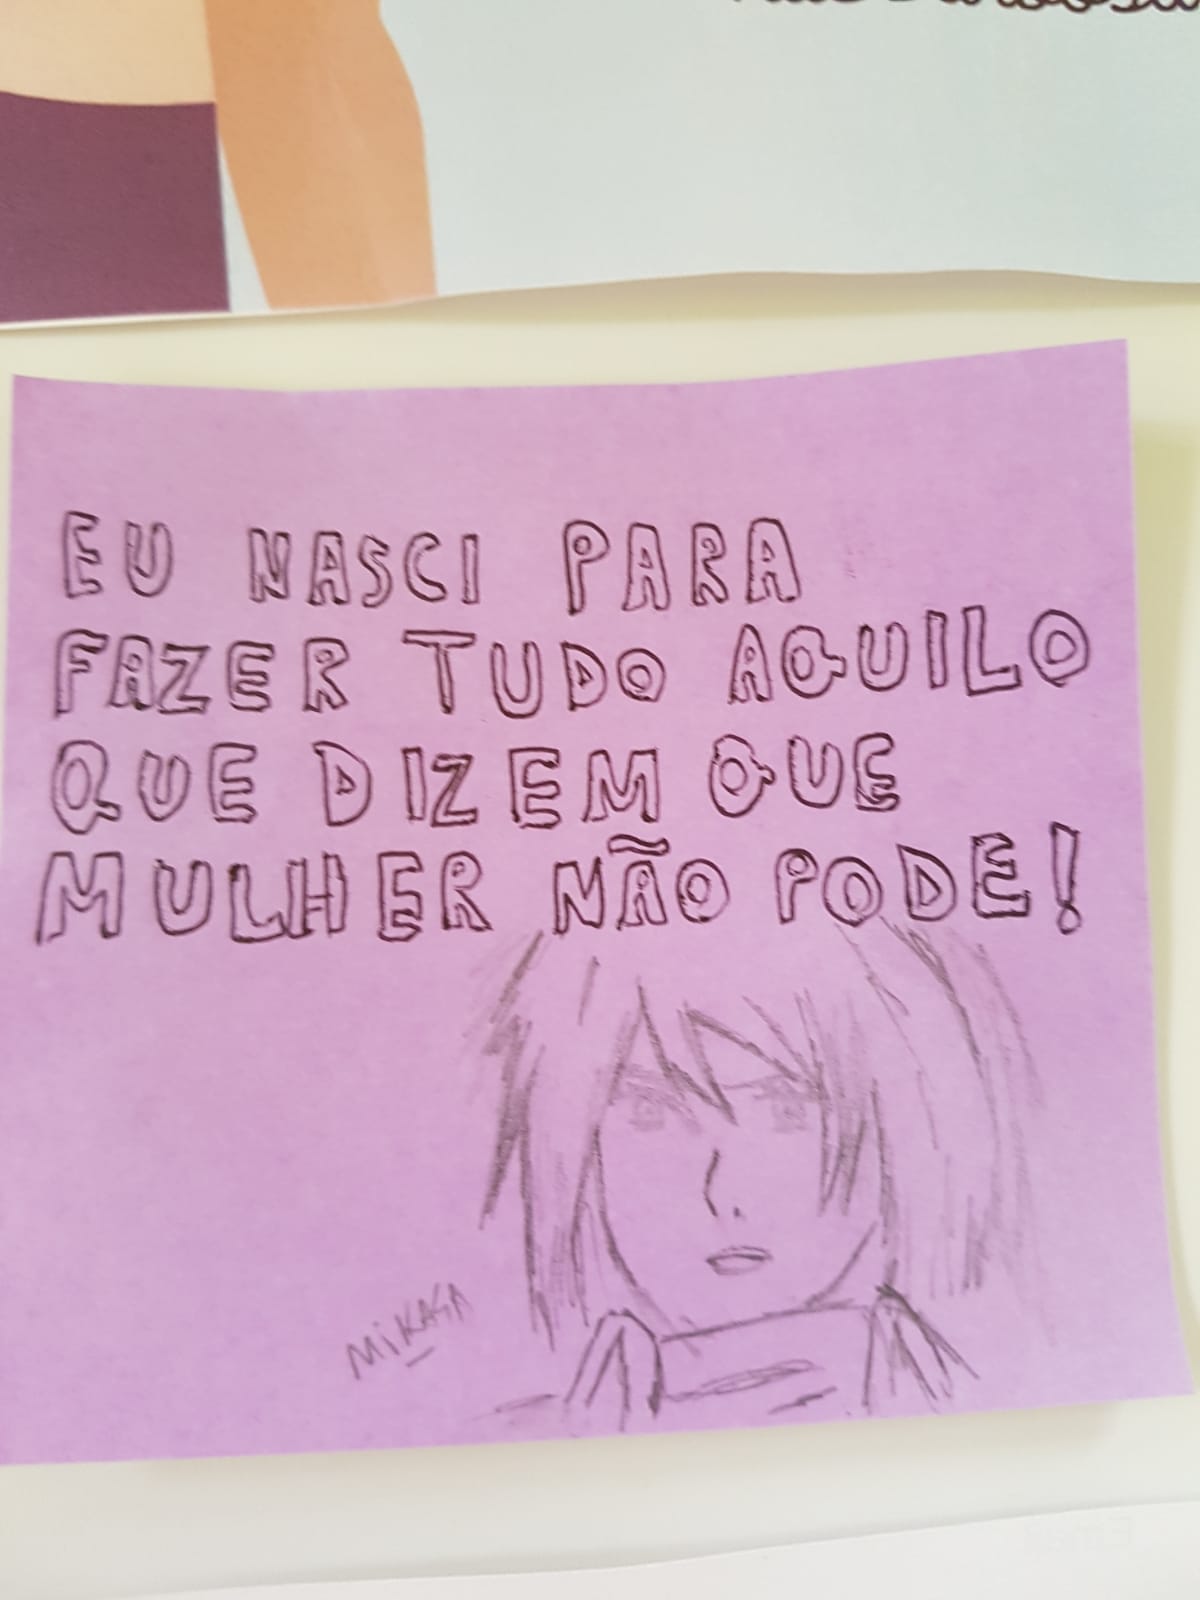 EU NASCI PARA
FAZER TUDO AQUILO
QUE DIZEM QUE
MULHER NÃO PODE!
MiKASA